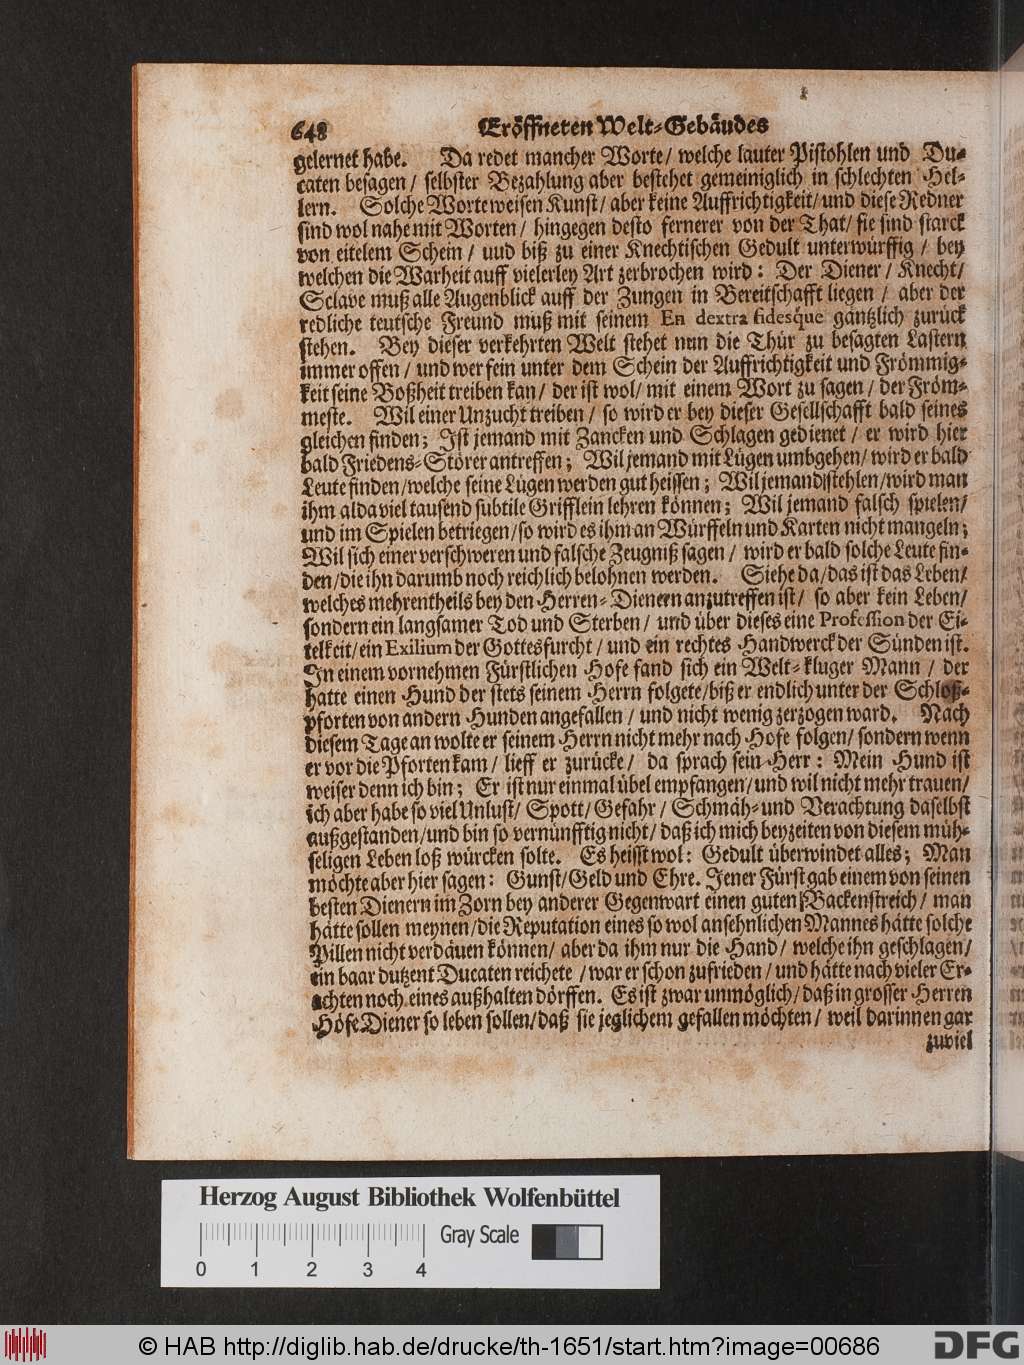 648 Eröffneten Welt-Gebäudes
gelernet habe. Da redet mancher Worte/ welche lauter Pistohlen und Du-
caten besagen/ selbster Bezahlung aber bestehet gemeiniglich in schlechten Hel-
lern. Solche Worte weisen Kunst/ aber keine Auffrichtigkeit/ und diese Redner
sind wol nahe mit Worten/ hingegen desto fernerer von der That/ sie sind starck
von eitelem Schein/ uud biß zu einer Knechtischen Gedult unterwürffig/ bey
welchen die Warheit auff vielerley Art zerbrochen wird: Der Diener/ Knecht/
Sclave muß alle Augenblick auff der Zungen in Bereitschafft liegen/ aber der
redliche teutsche Freund muß mit seinem En dextra fidesque gäntzlich zurück
stehen. Bey dieser verkehrten Welt stehet nun die Thür zu besagten Lastern
immer offen/ und wer fein unter dem Schein der Auffrichtigkeit und Frömmig-
keit seine Boßheit treiben kan/ der ist wol/ mit einem Wort zu sagen/ der Fröm-
meste. Wil einer Unzucht treiben/ so wird er bey dieser Gesellschafft bald seines
gleichen finden; Ist jemand mit Zancken und Schlagen gedienet/ er wird hier
bald Friedens-Störer antreffen; Wil jemand mit Lügen umbgehen/ wird er bald
Leute finden/ welche seine Lügen werden gut heissen; Wil jemand stehlen/ wird man
ihm alda viel tausend subtile Grifflein lehren können; Wil jemand falsch spielen/
und im Spielen betriegen/ so wird es ihm an Würffeln und Karten nicht mangeln;
Wil sich einer verschweren und falsche Zeugniß sagen/ wird er bald solche Leute fin-
den/ die ihn darumb noch reichlich belohnen werden. Siehe da/ das ist das Leben/
welches mehrentheils bey den Herren-Dienern anzutreffen ist/ so aber kein Leben/
sondern ein langsamer Tod und Sterben/ und über dieses eine Profession der Ei-
telkeit/ ein Exilium der Gottesfurcht/ und ein rechtes Handwerck der Sünden ist.
In einem vornehmen Fürstlichen Hofe fand sich ein Welt-kluger Mann/ der
hatte einen Hund der stets seinem Herrn folgete/ biß er endlich unter der Schloß-
pforten von andern Hunden angefallen/ und nicht wenig zerzogen ward. Nach
diesem Tage an wolte er seinem Herrn nicht mehr nach Hofe folgen/ sondern wenn
er vor die Pforten kam/ lieff er zurücke/ da sprach sein Herr: Mein Hund ist
weiser denn ich bin; Er ist nur einmal übel empfangen/ und wil nicht mehr trauen/
ich aber habe so viel Unlust/ Spott/ Gefahr/ Schmäh- und Verachtung daselbst
außgestanden/ und bin so vernünfftig nicht/ daß ich mich beyzeiten von diesem müh-
seligen Leben loß würcken solte. Es heisst wol: Gedult überwindet alles; Man
möchte aber hier sagen: Gunst/ Geld und Ehre. Jener Fürst gab einem von seinen
besten Dienern im Zorn bey anderer Gegenwart einen guten Backenstreich/ man
hätte sollen meynen/ die Reputation eines so wol ansehnlichen Mannes hätte solche
Pillen nicht verdäuen können/ aber da ihm nur die Hand/ welche ihn geschlagen/
ein baar dutzent Ducaten reichete/ war er schon zufrieden/ und hätte nach vieler Er-
achten noch eines außhalten dörffen. Es ist zwar unmöglich/ daß in grosser Herren
Höfe Diener so leben sollen/ daß sie jeglichem gefallen möchten/ weil darinnen gar
zuviel
Herzog August Bibliothek Wolfenbüttel
Gray Scale
0 1 2 3 4
© HAB http://diglib.hab.de/drucke/th-1651/start.htm?image=00686
DFG